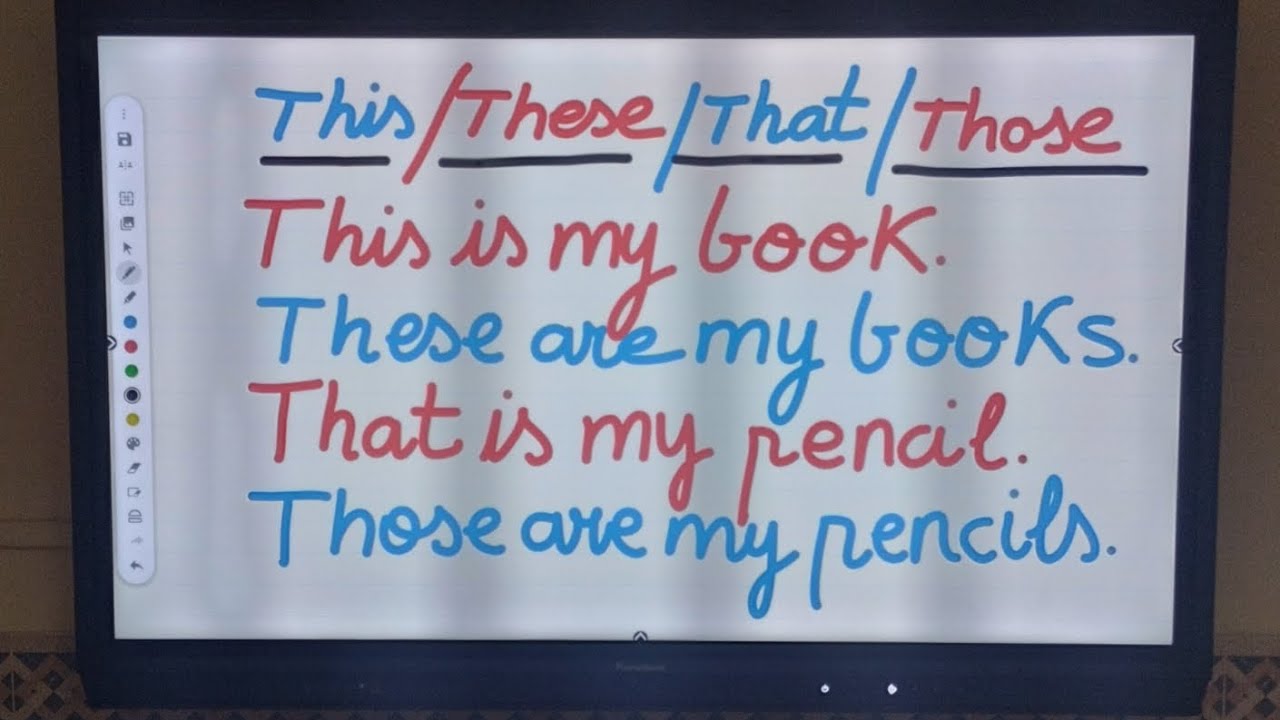 This/These/That/Those
This is my book.
These are my books.
That is my pencil.
Those are my pencils.